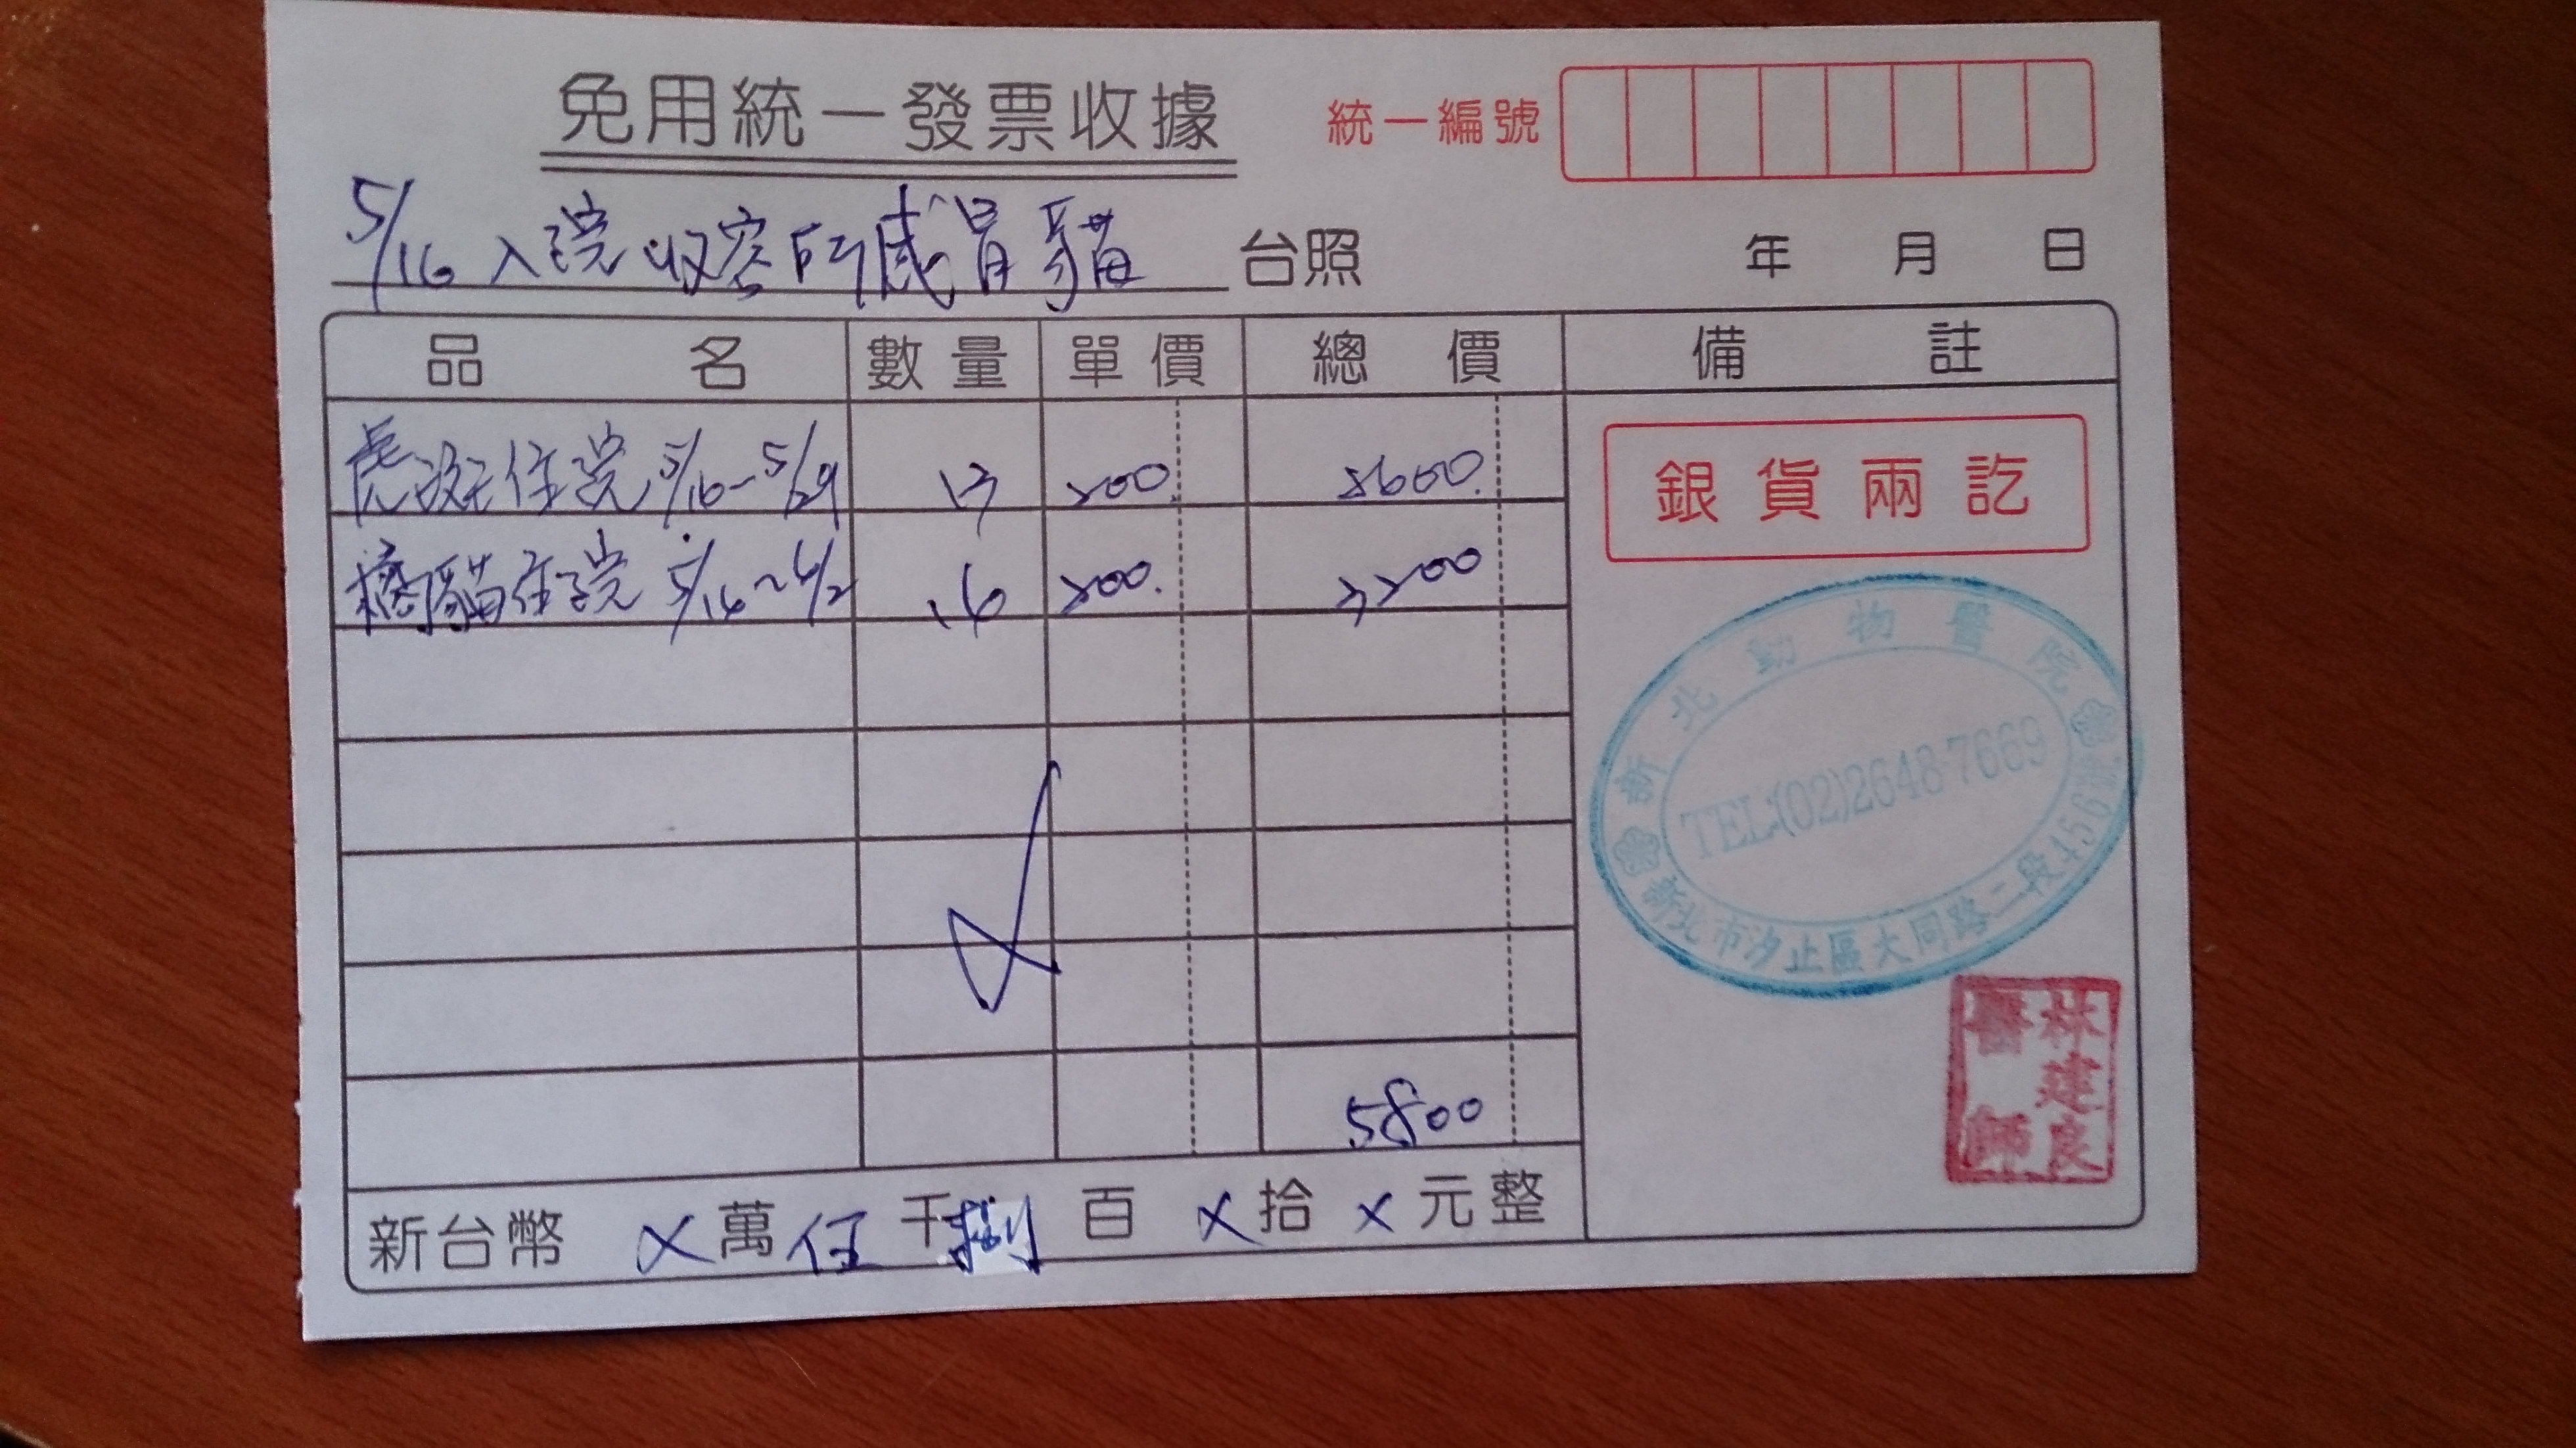 免用統一發票收據
統一編號
5/16 入院收容所感冒貓 台照
年 月 日
品名 數量 單價 總價 備註
虎斑住院 5/16-5/29 13 200 2600
橘貓住院 5/16~6/2 16 200 3200
5800
新台幣 X萬伍千捌百X拾X元整
銀貨兩訖
新北動物醫院
TEL:(02)2648-7669
新北市汐止區大同路二段456號
林建良
醫師